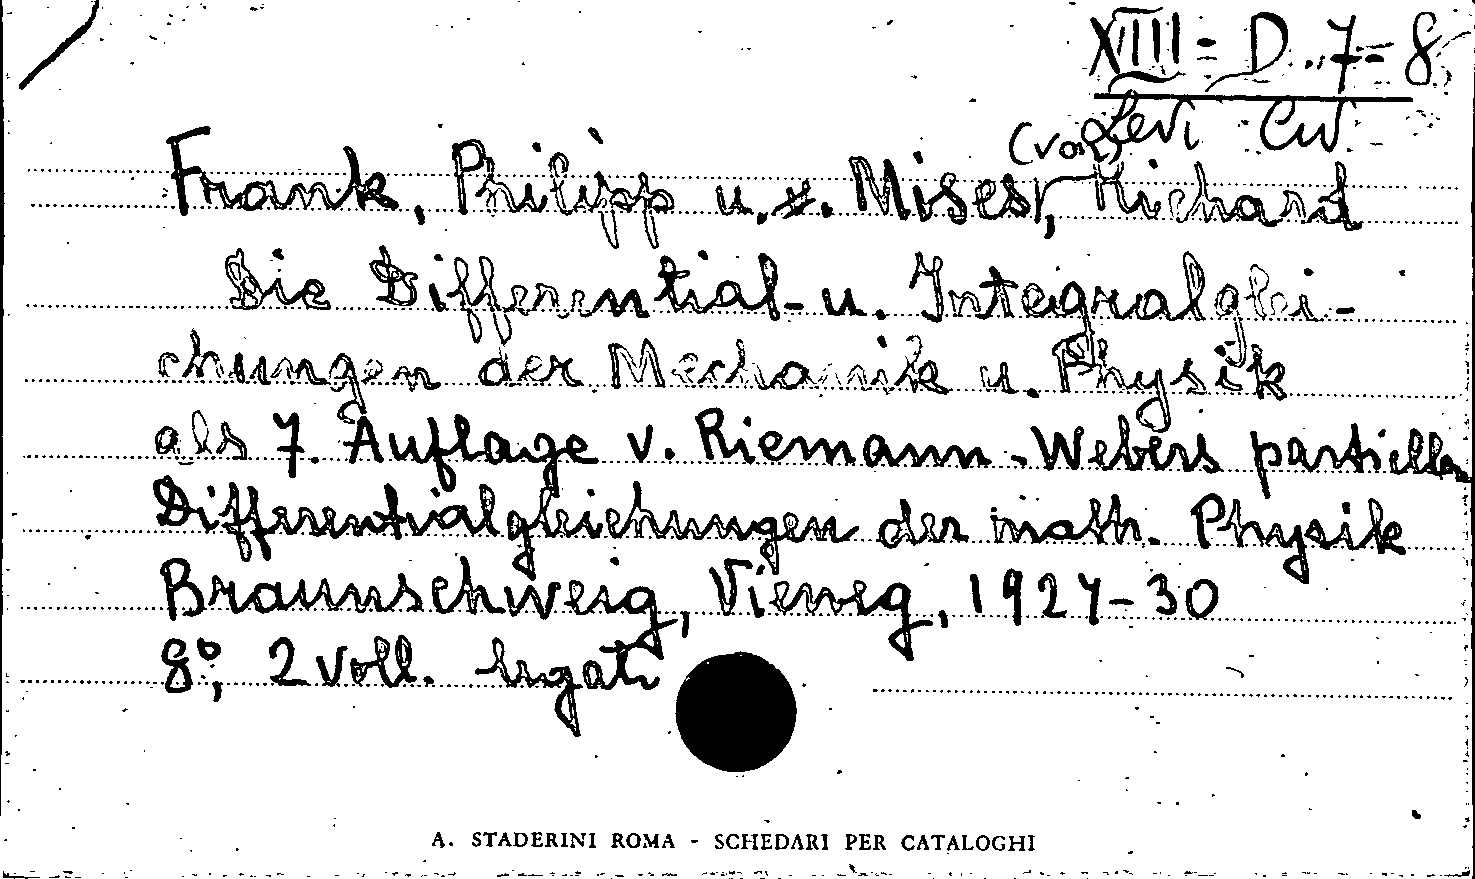 XIII = D. 7 = 8
Levi Civ.
(von)
Frank, Philipp u. v. Mises, Richard
Die Differential- u. Integralglei-
chungen der Mechanik u. Physik
als 7. Auflage v. Riemann-Webers partiellen
Differentialgleichungen der math. Physik
Braunschweig, Vieweg, 1927-30
8°, 2 voll. legati
A. STADERINI ROMA - SCHEDARI PER CATALOGHI